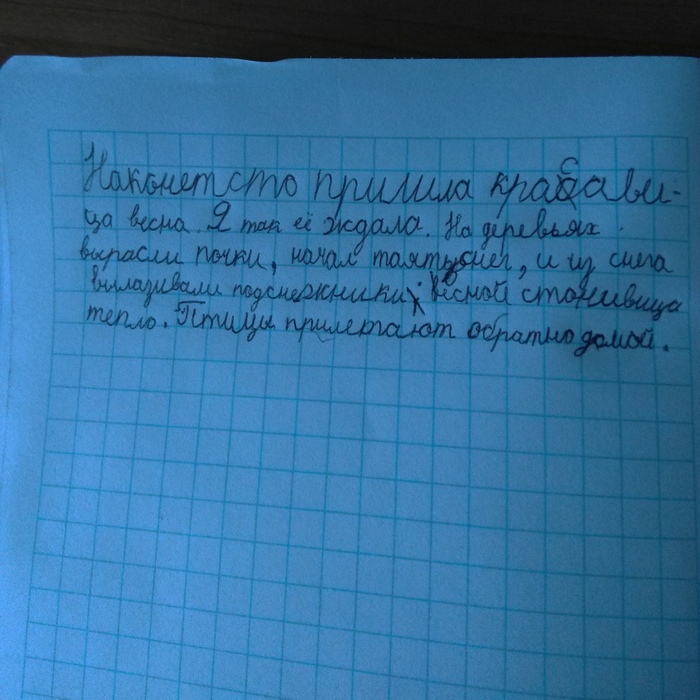 Наконетсто пришла красави-
ца весна. Я так её ждала. На деревьях
вырасли почки, начал таять снег, и из снега
вылазивали подснежники. Весной становица
тепло. Птицы прилетают обратно домой.